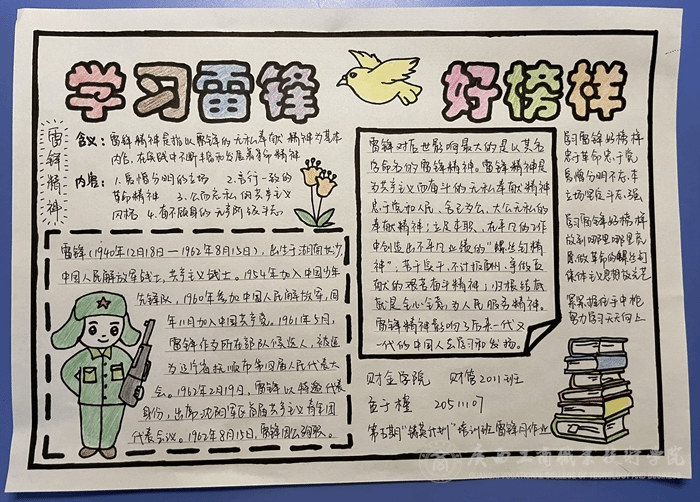 学习雷锋 好榜样
雷锋精神
含义：雷锋精神是指以雷锋的无私奉献精神为基本
内涵，在实践中不断丰富和发展着革命精神
内容：1.爱憎分明的立场 2.言行一致的
革命精神 3.公而忘私的共产主义
风格 4.奋不顾身的无产阶级斗志
雷锋（1940年12月18日—1962年8月15日），出生于湖南长沙，
中国人民解放军战士，共产主义战士。1954年加入中国少年
先锋队，1960年参加中国人民解放军，同
年11月加入中国共产党。1961年5月，
雷锋作为所在部队候选人，被选
为辽宁省抚顺市第四届人民代表大
会。1962年2月19日，雷锋以特邀代表
身份，出席沈阳军区首届共产主义青年团
代表会议。1962年8月15日，雷锋因公殉职。
雷锋对后世影响最大的是以其名
字命名的雷锋精神。雷锋精神是
为共产主义而奋斗的无私奉献精神
忠于党和人民、舍己为公、大公无私的
奉献精神；立足本职、在平凡的工作
中创造出不平凡业绩的“螺丝钉
精神”，苦干实干、不计报酬、争做贡
献的艰苦奋斗精神；归根结底
就是全心全意为人民服务精神。
雷锋精神影响了后来一代又
一代的中国人去学习和发扬。
学习雷锋好榜样
忠于革命忠于党
爱憎分明不忘本
立场坚定斗志强
学习雷锋好榜样
放到哪里哪里亮
愿做革命的螺丝钉
集体主义思想放光芒
紧握手中枪
努力学习天天向上
财金学院 财管2011班
20511107
第五期“铸英计划”培训班雷锋月作业
广西工商职业技术学院